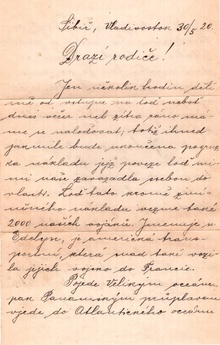 Sibiř, Vladivostok 30/5 20.
Drazí rodiče!
Jen několik hodin dělí
mě od vstupu na loď neboť
dnes večer neb zítra ráno má-
me se naloďovat; totiž ihned
jakmile bude skončena
nákladu její
naše zavazadla sebou do
vlasti. Loď tato kromě
nákladu vezme také
2000 našich vojínů. Jmenuje se
Edellyn, je americká trans-
portní, která snad také vozi-
la jejich vojsko do Francie.
Pojede Velikým oceánem,
pak Panamským průplavem
vjede do Atlantického oceánu